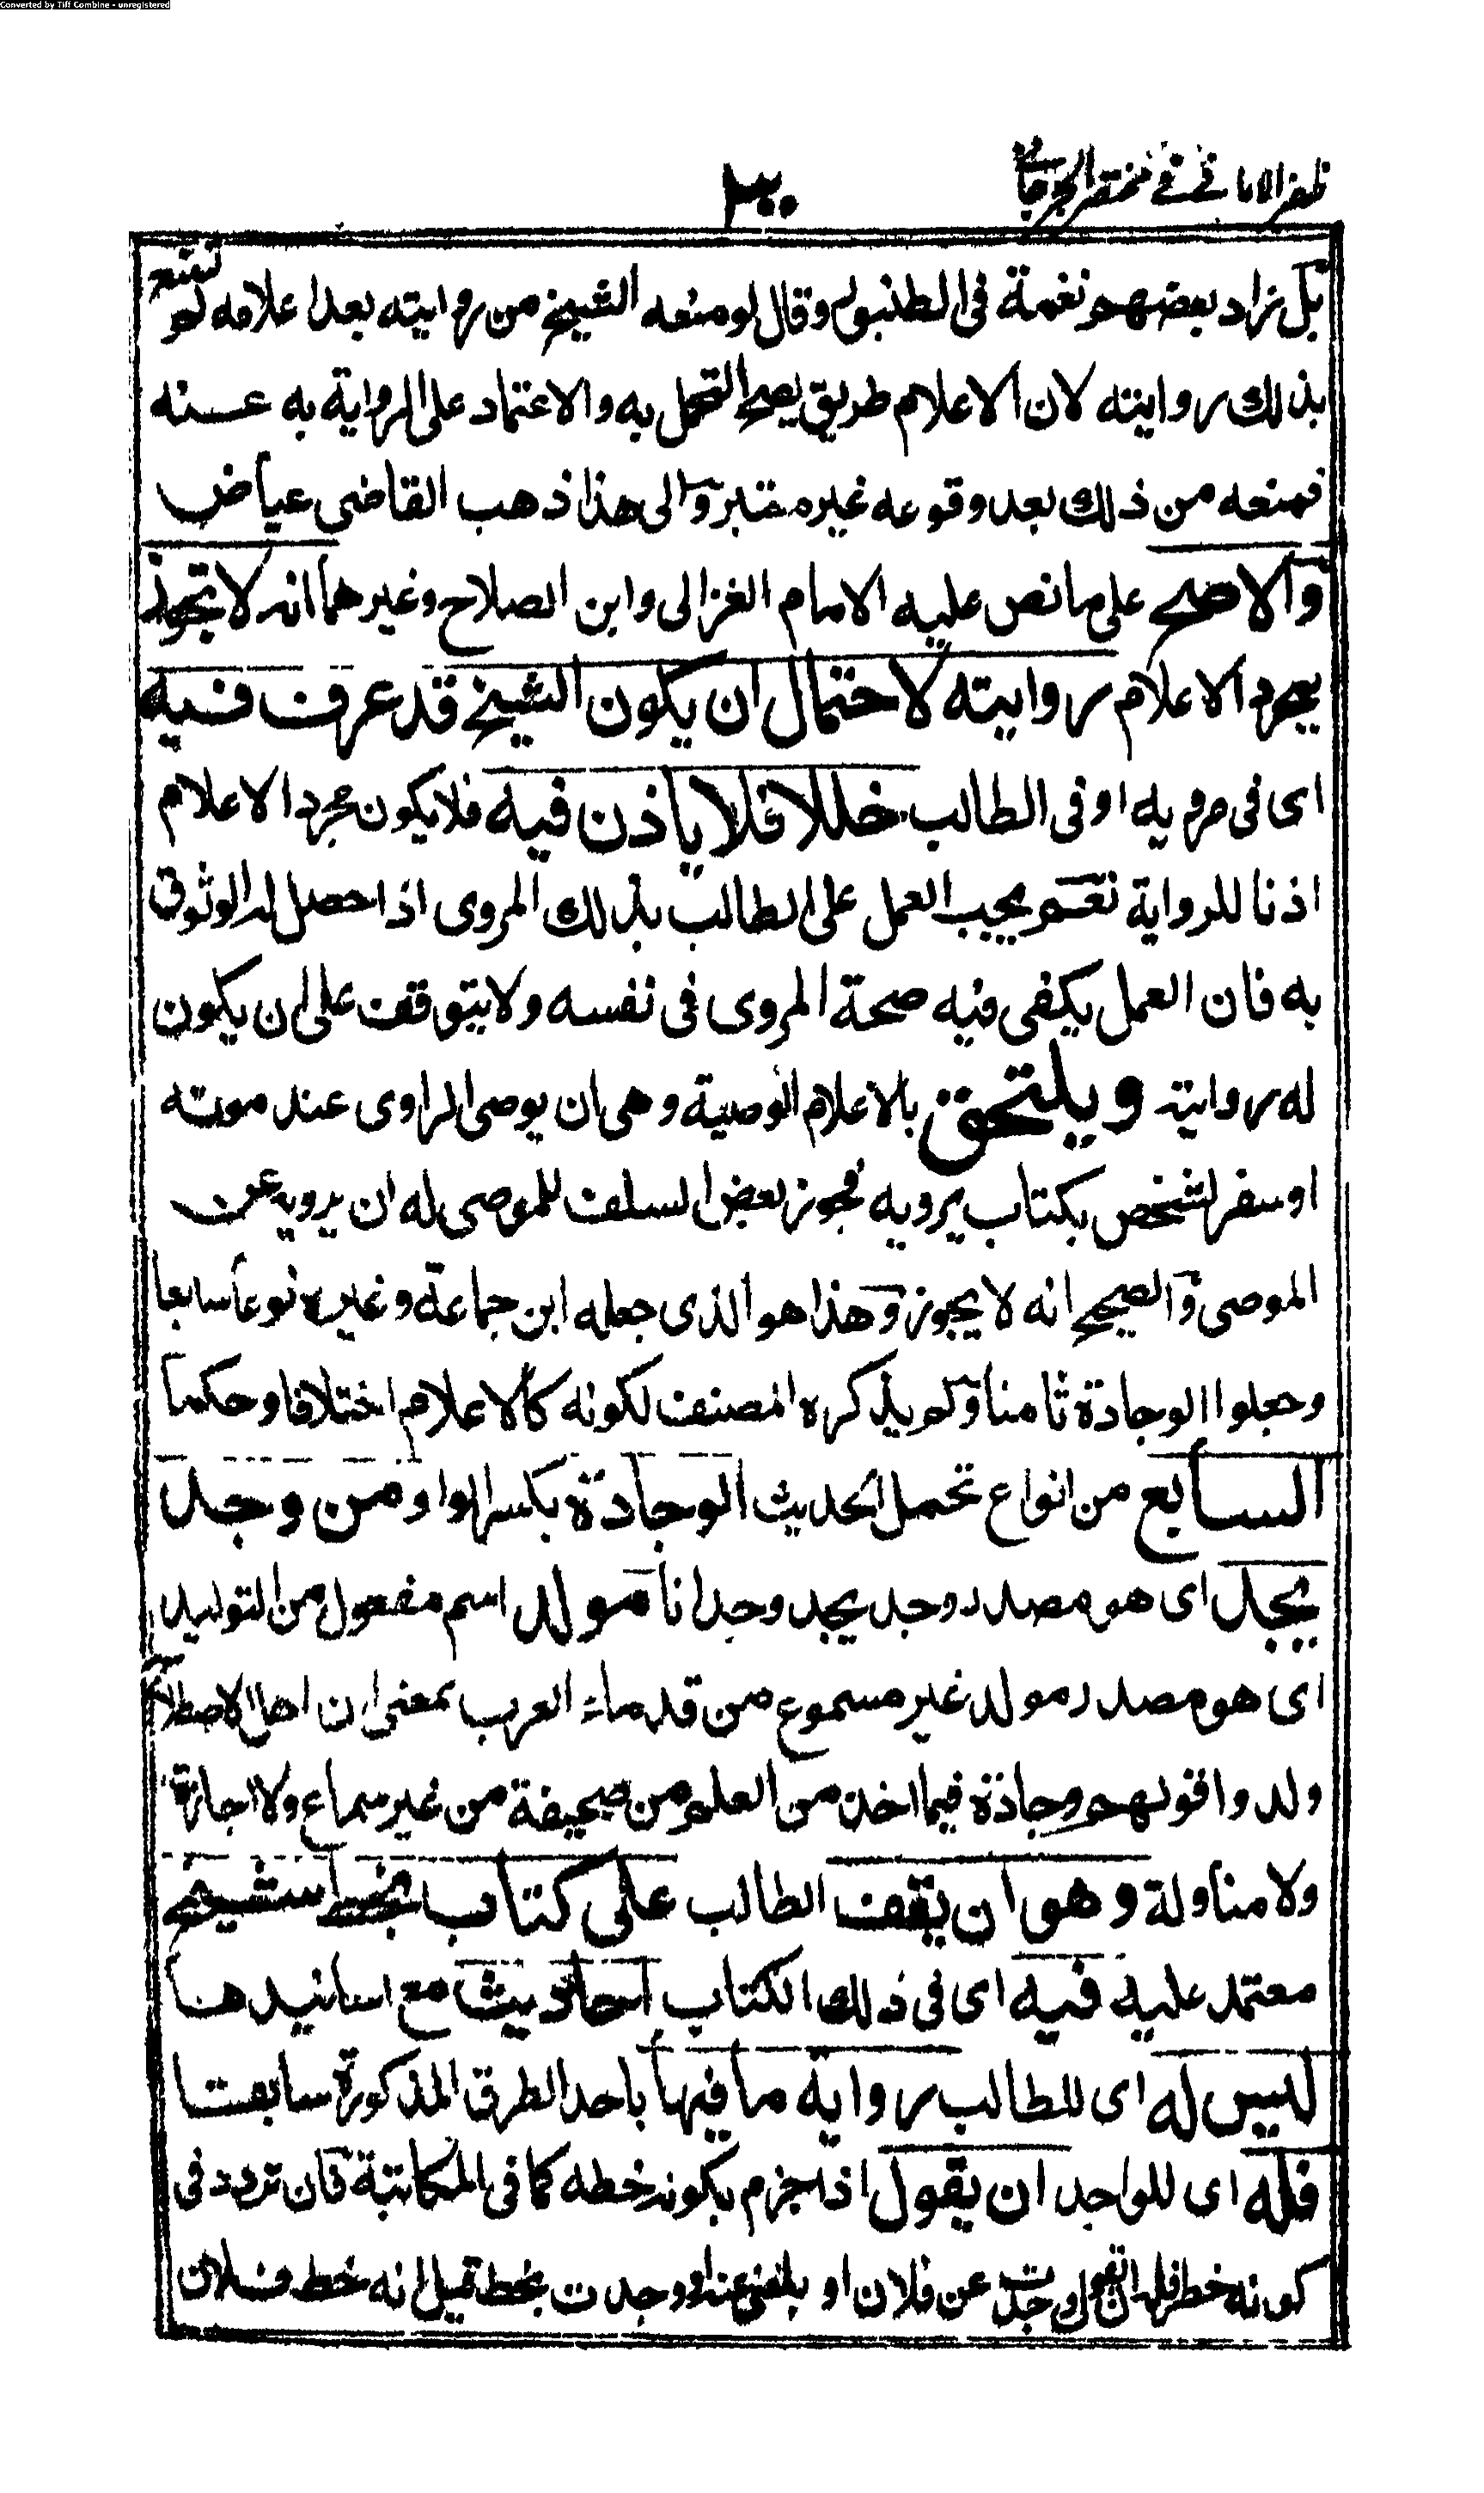 Converted by Tiff Combine - unregistered
ظفر الاماني في مختصر الجرجاني
٣٠٠
بل زاد بعضهم نغمة في الطنبور وقال لو منعه الشيخ من روايته بعد اعلامه لم تمتنع
بذلك روايته لان الاعلام طريق يصح التحمل به والاعتماد على الرواية به عنه
فمنعه من ذلك بعد وقوعه غير معتبر والى هذا ذهب القاضى عياض
والاصح على ما نص عليه الامام الغزالى وابن الصلاح وغيرهما انه لا تجوز
بمجرد الاعلام روايته لاحتمال ان يكون الشيخ قد عرف فيه
اى فى مرويه او فى الطالب خللا فلا ياذن فيه فلا يكون مجرد الاعلام
اذنا للرواية نعم يجب العمل على الطالب بذلك المروى اذا حصل له الوثوق
به فان العمل يكفى فيه صحة المروى فى نفسه ولا يتوقف على ان يكون
له روايته ويلتحق بالاعلام الوصية وهى ان يوصى الراوى عند موته
او سفر لشخص بكتاب يرويه فجوز بعض السلف للموصى له ان يرويه عن
الموصى والصحيح انه لا يجوز وهذا هو الذى جعله ابن جماعة وغيره نوعا سابعا
وجعلوا الوجادة ثامنا ولم يذكره المصنف لكونه كالاعلام اختلافا وحكما
السابع من انواع تحمل الحديث الوجادة بكسر الواو من وجد
يجد اى هو مصدر وجد يجد وجدانا مولد اسم مفعول من التوليد
اى هو مصدر مولد غير مسموع من قدماء العرب بمعنى ان اهل الاصطلاح
ولدوا قولهم وجادة فيما اخذ من العلم من صحيفة من غير سماع ولا اجازة
ولا مناولة وهو ان يقف الطالب على كتاب بخط شيخ
معتمد عليه فيه اى فى ذلك الكتاب احاديث مع اسانيدها
ليس له اى للطالب رواية ما فيها باحد الطرق المذكورة سابقا
فله اى للواجد ان يقول اذا جزم بكونه خطه كما فى المكاتبة فان تردد فى
كونه خطه فله ان يقول وجدت عن فلان او بلغنى عنه او وجدت بخط قيل انه خط فلان